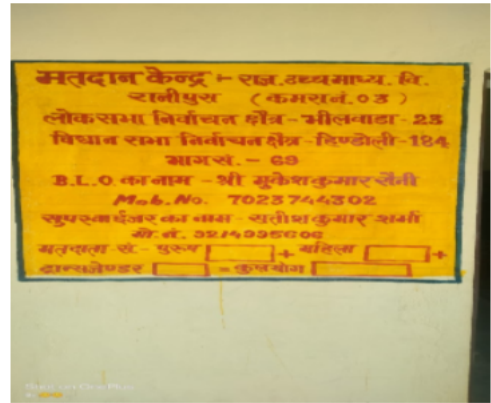 मतदान केन्द्र :- राज. उच्च माध्य. वि.
रानीपुरा (कमरा नं. 03)
लोकसभा निर्वाचन क्षेत्र - भीलवाडा - 23
विधान सभा निर्वाचन क्षेत्र - हिण्डोली - 184
भाग सं. - 69
B.L.O. का नाम - श्री मुकेश कुमार सैनी
Mob. No. 7023744302
सुपरवाईजर का नाम - सतीश कुमार शर्मा
मो. नं. 3214995606
मतदाता सं. - पुरुष + महिला +
ट्रान्सजेण्डर = कुल योग
Shot on OnePlus